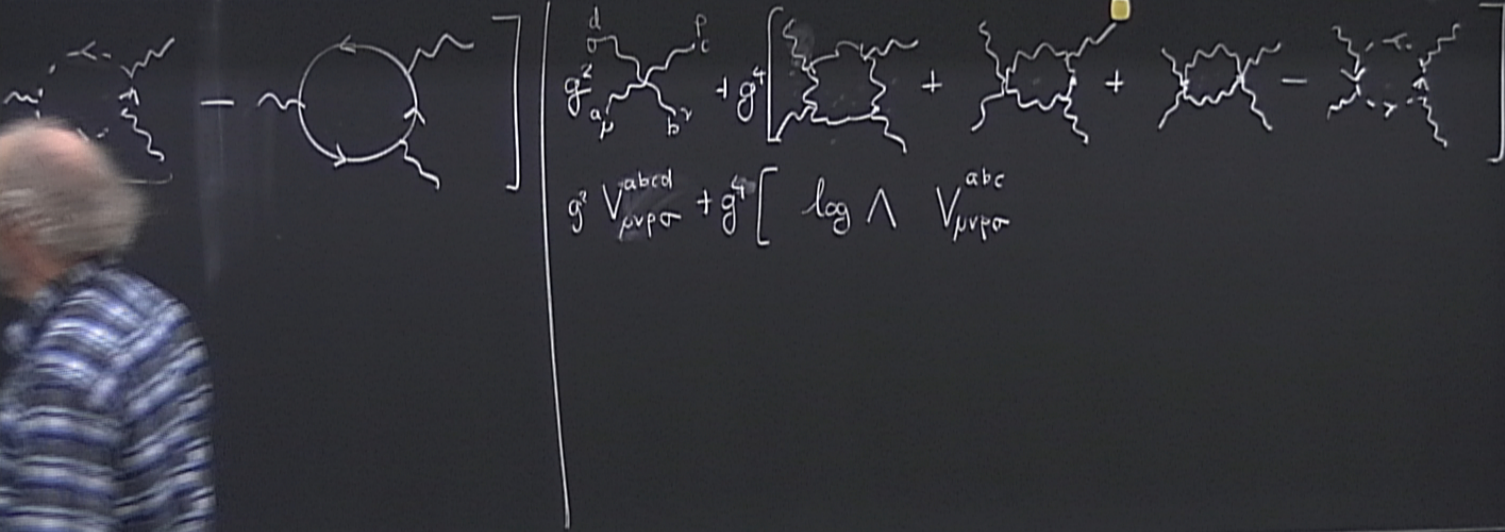 − ]
d ρ c
g² a μ b ν + g⁴ [ + + − ]
g² V^{abcd}_{μνρσ} + g⁴ [ log Λ V^{abc}_{μνρσ}